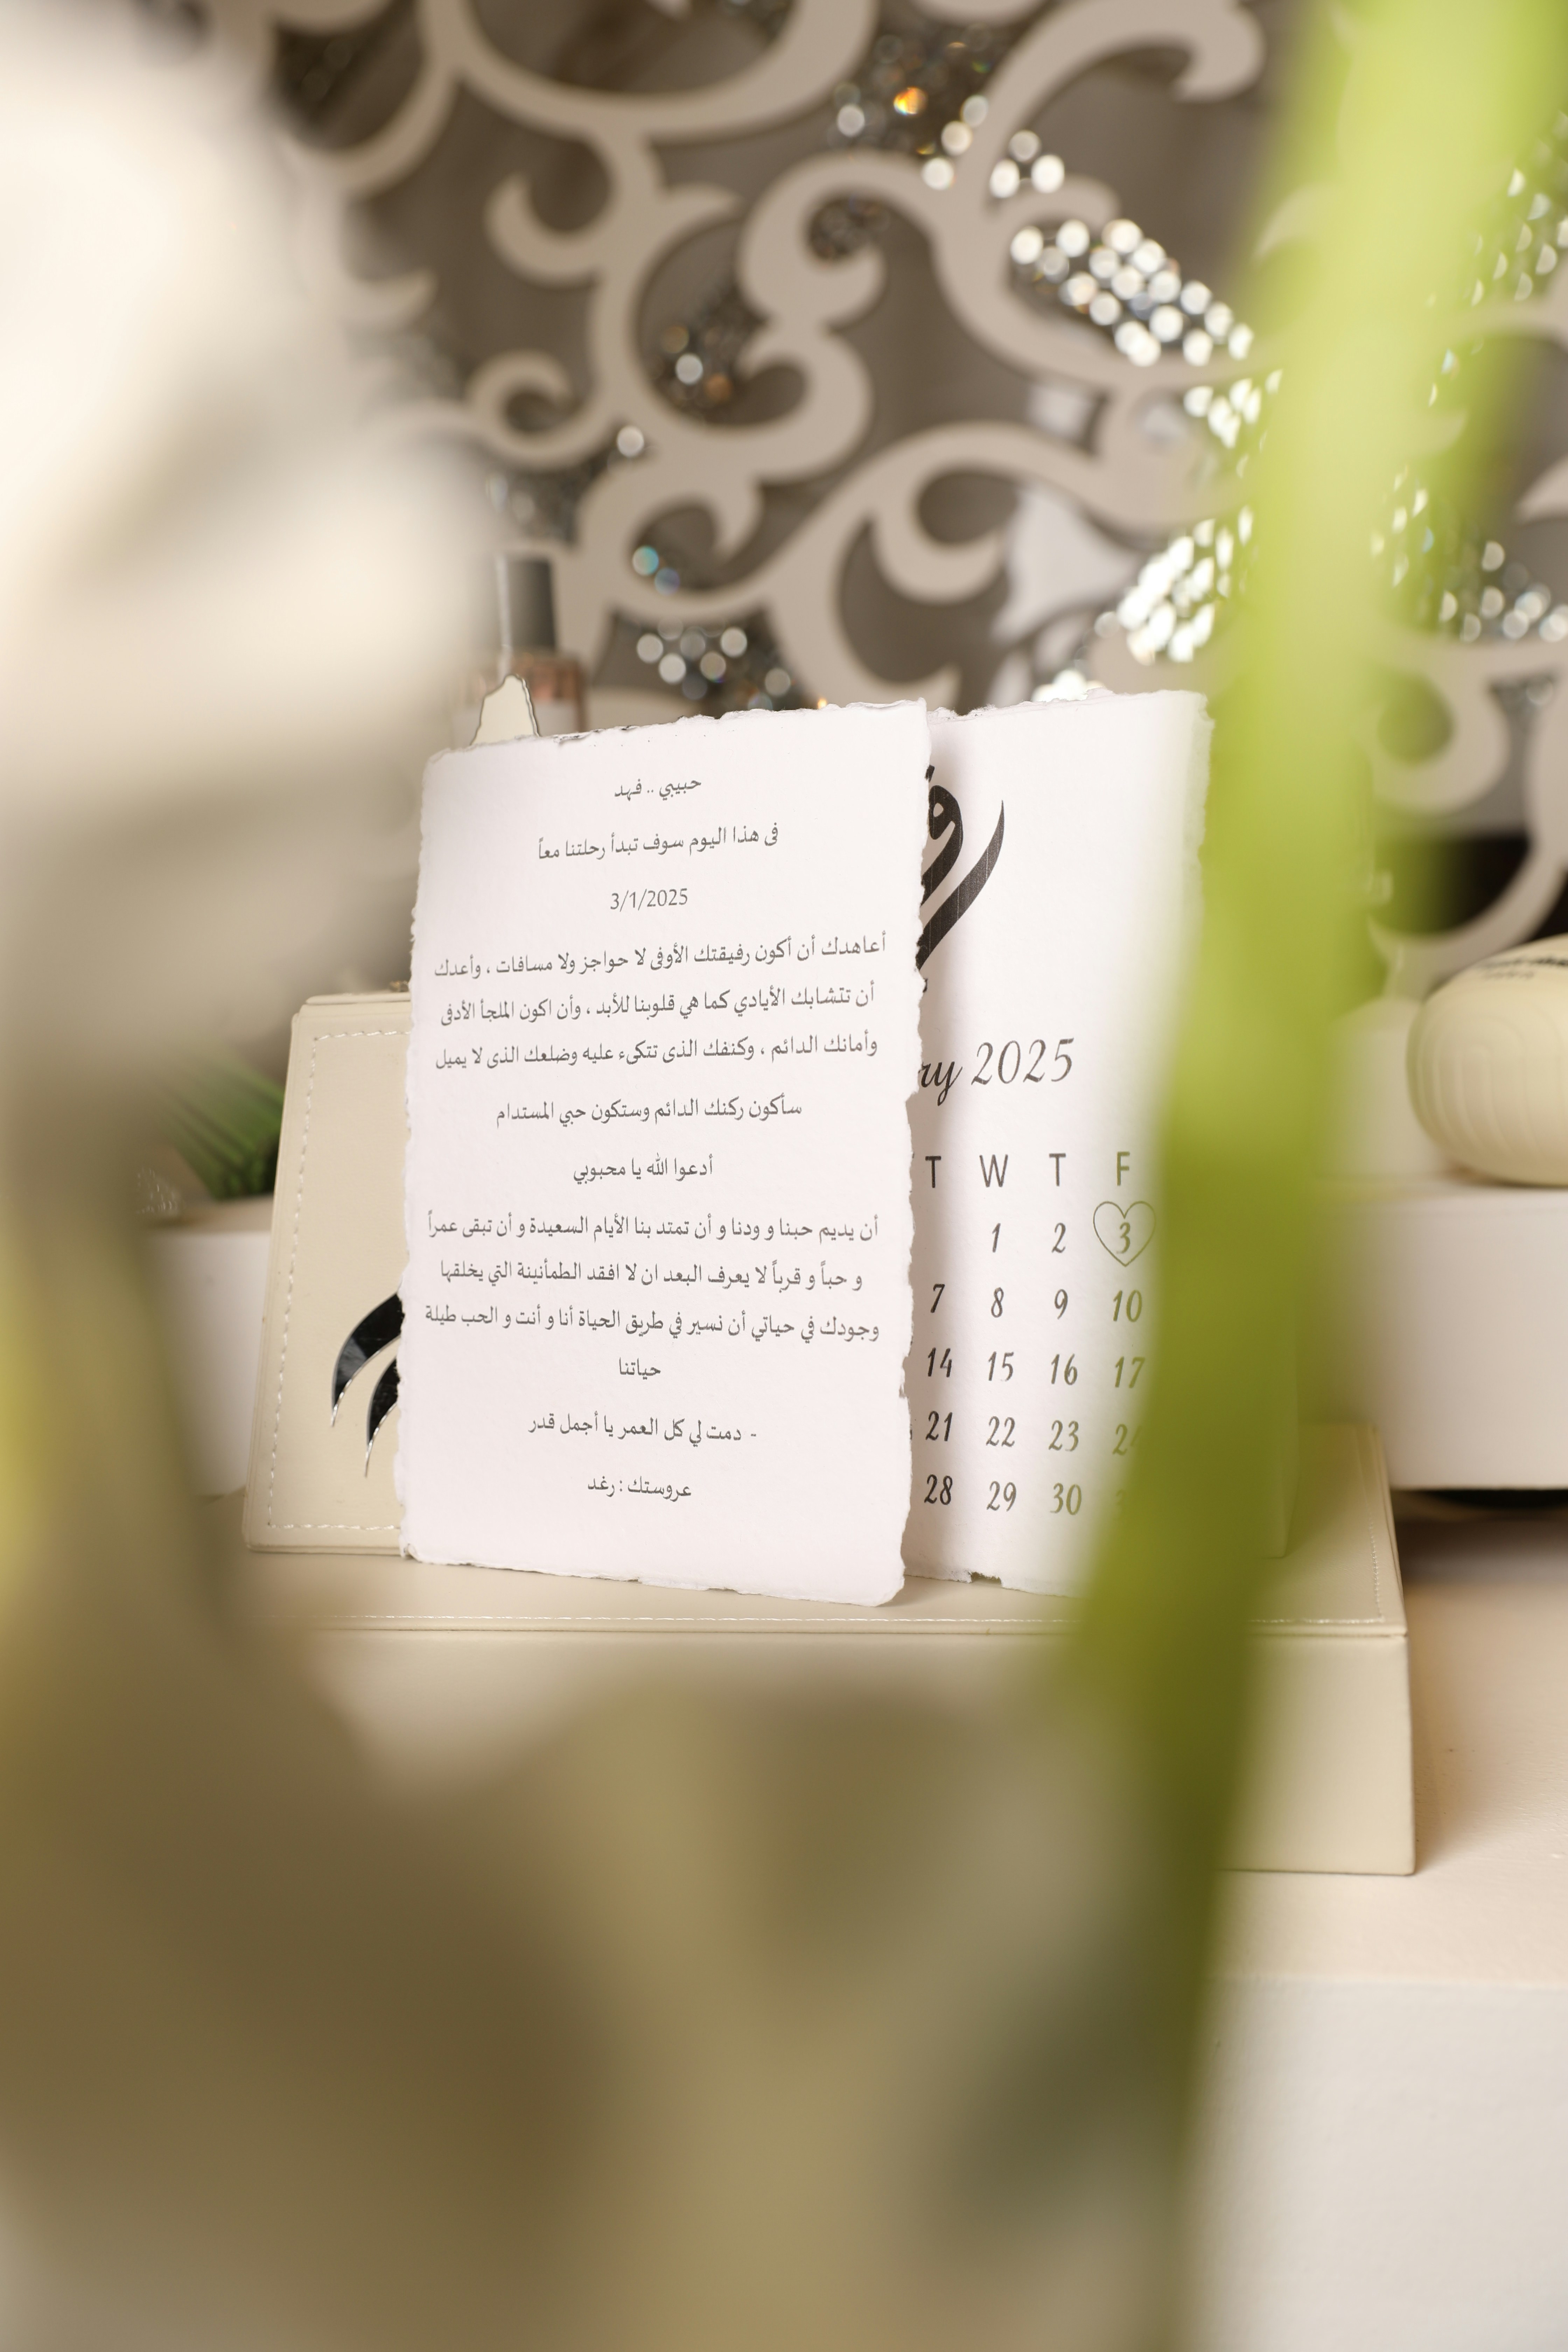 حبيبي .. فهد
فى هذا اليوم سوف تبدأ رحلتنا معاً
3/1/2025
أعاهدك أن أكون رفيقتك الأوفى لا حواجز ولا مسافات ، وأعدك
أن تتشابك الأيادي كما هي قلوبنا للأبد ، وأن اكون الملجأ الأدفى
وأمانك الدائم ، وكنفك الذى تتكىء عليه وضلعك الذى لا يميل
سأكون ركنك الدائم وستكون حبي المستدام
أدعوا الله يا محبوبي
أن يديم حبنا و ودنا و أن تمتد بنا الأيام السعيدة و أن تبقى عمراً
و حباً و قرباً لا يعرف البعد ان لا افقد الطمأنينة التي يخلقها
وجودك في حياتي أن نسير في طريق الحياة أنا و أنت و الحب طيلة
حياتنا
- دمت لي كل العمر يا أجمل قدر
عروستك : رغد
ry 2025
T W T F
1 2 3
7 8 9 10
14 15 16 17
21 22 23
28 29 30